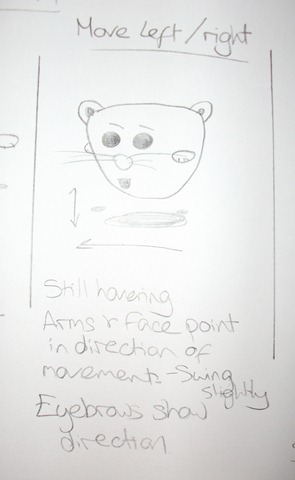 Move left/right
Still hovering
Arms & Face point
in direction of
movements - Swing
slightly
Eyebrows show
direction